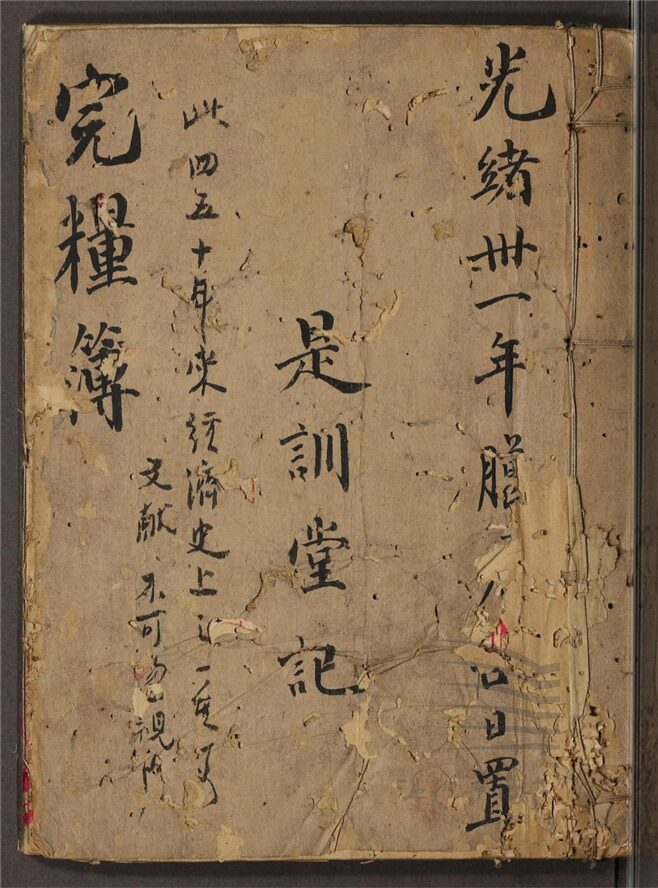 光緒卅一年腊日置
是訓堂記
此四五十年來經濟史上之一重要
文献不可忽視也
完糧簿